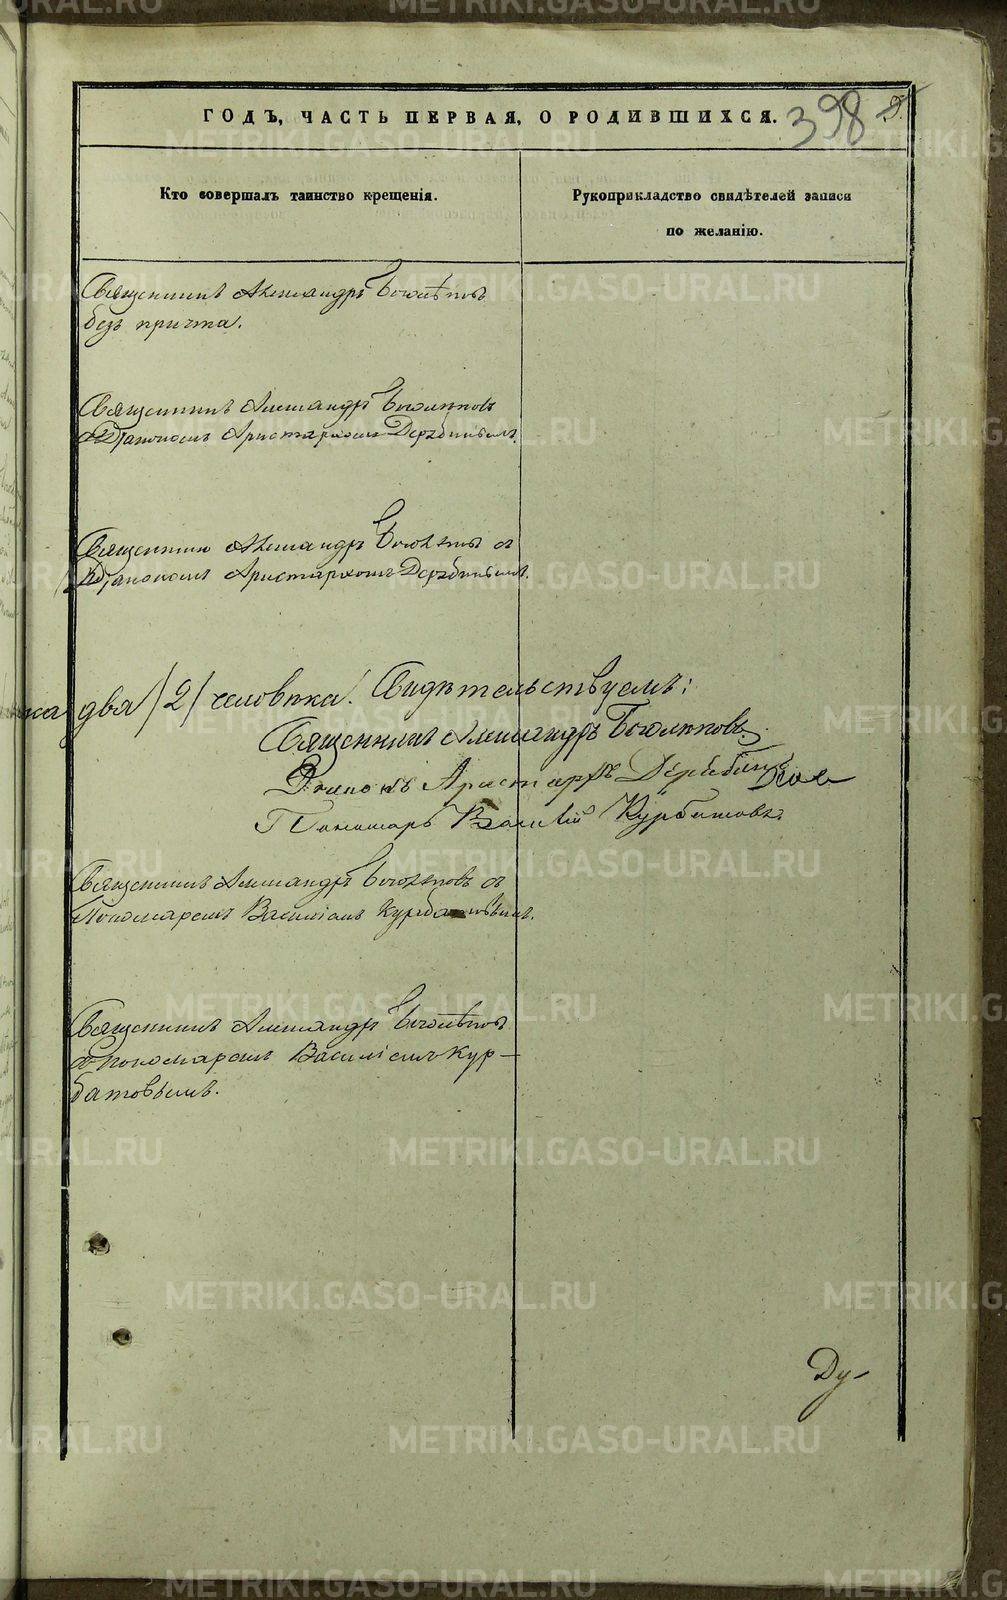 ГОДЪ, ЧАСТЬ ПЕРВАЯ, О РОДИВШИХСЯ.
398
Кто совершалъ таинство крещенія.
Рукоприкладство свидѣтелей записи
по желанію.
Священникъ Александръ Боголѣповъ
безъ причта.
Священникъ Александръ Боголѣповъ
съ Діакономъ Аристархомъ Дерябинымъ.
Священникъ Александръ Боголѣповъ съ
Діакономъ Аристархомъ Дерябинымъ.
два /2/ человѣка. Свидѣтельствуемъ:
Священникъ Александръ Боголѣповъ.
Діаконъ Аристархъ Дерябинъ
Пономарь Василій Курбатовъ.
Священникъ Александръ Боголѣповъ съ
Пономаремъ Василіемъ Курбатовымъ.
Священникъ Александръ Боголѣповъ
съ пономаремъ Василіемъ Кур-
батовымъ.
Ду-
METRIKI.GASO-URAL.RU